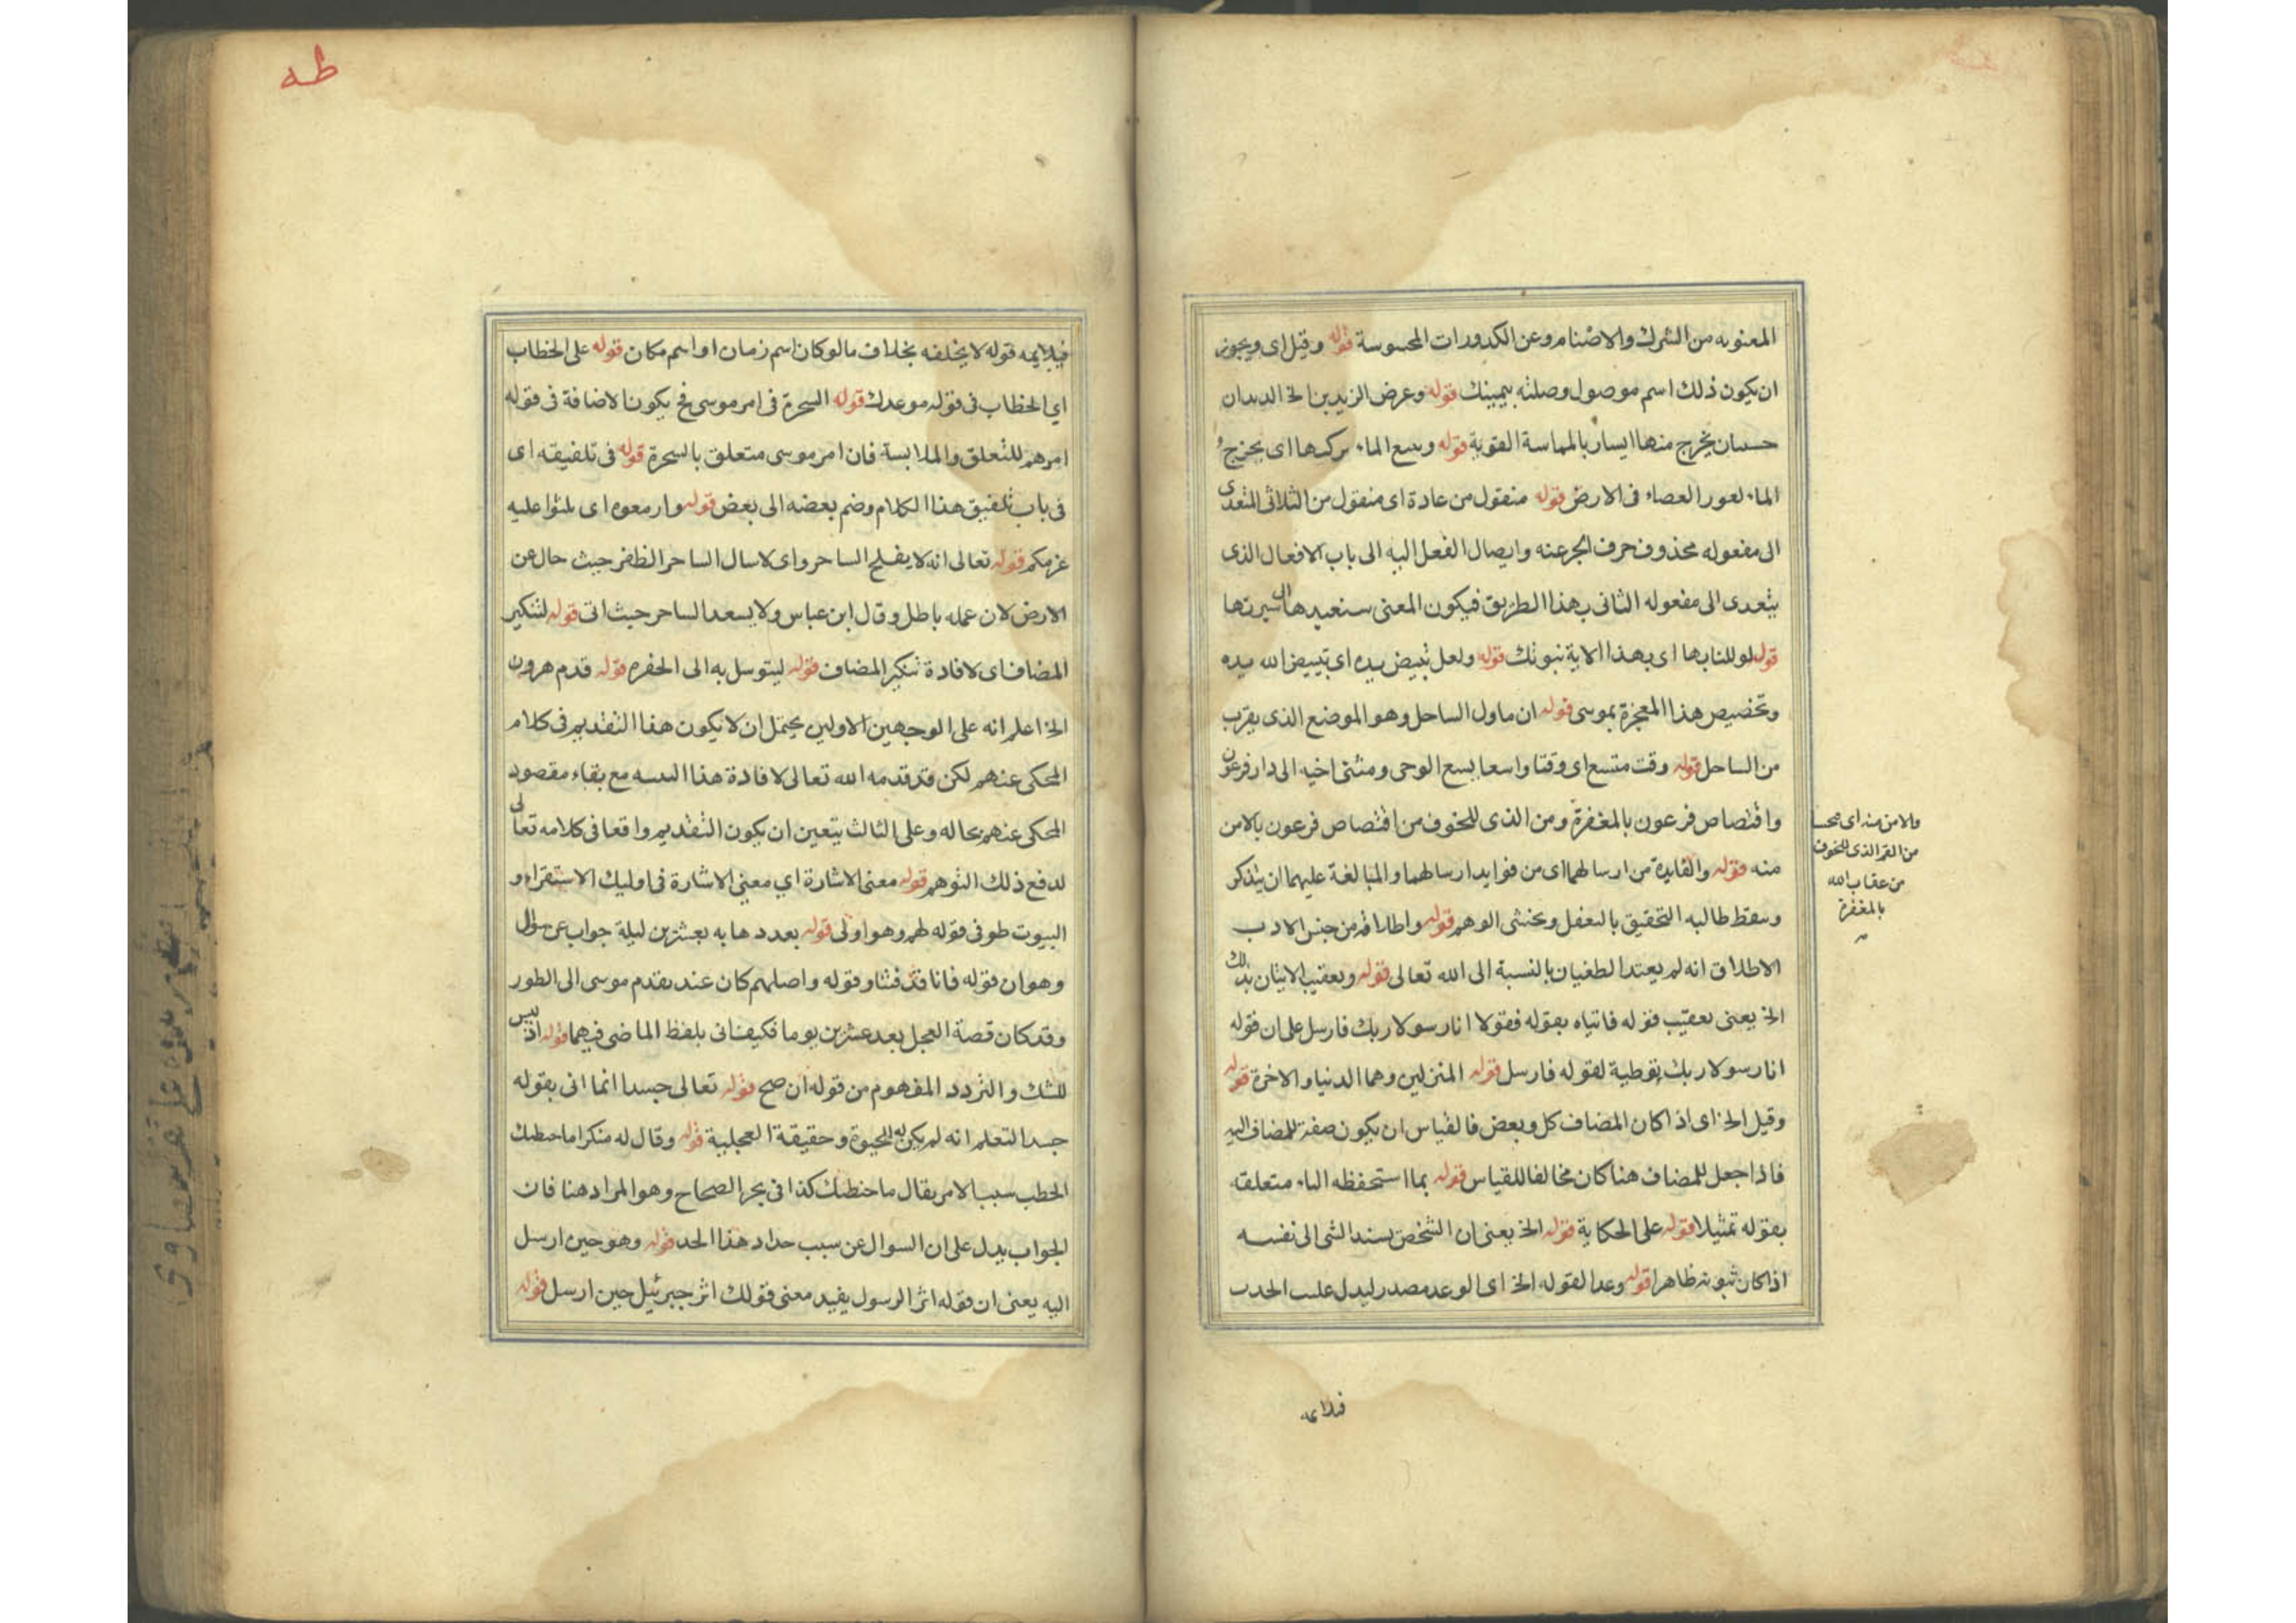 المعنويه من الشرك والاصنام وعن الكدورات المحسوسة قوله وقيل اى ويجوز
ان يكون ذلك اسم موصول وصلته بيمينك قوله وعرض الزيدين الخ الديدان
حسبان يخرج منهما ايسار بالمماسة القوية قوله وسع الماء اى يخرج
الماء لعور العصاء فى الارض قوله منقول من عادة اى منقول من الثلاثى المتعدى
الى مفعوله محذوف حرف الجر عنه وايصال الفعل اليه الى باب الافعال الذى
يتعدى الى مفعوله الثانى بهذا الطريق فيكون المعنى سنعيدها الى سيرتها
قوله اى بهذا الاية نبوتك قوله ولعل تبيض يده اى تبييض الله يده
وتخصيص هذا المعجزة بموسى قوله ان ماول الساحل وهو الموضع الذى يقرب
من الساحل قوله وقت متسع اى وقتا واسعا يسع الوحى ومشى اخيه الى دار فرعون
واقتصاص فرعون بالمغفرة ومن الذى للخوف من اقتصاص فرعون بالامن
منه قوله والفايدة من ارسالهما اى من فوايد ارسالهما والمبالغة عليهما ان يتذكر
وسقط طالبه التحقيق بالتعقل ويخشى الوهم قوله واطلاقه من جنس الادب
الاطلاق انه لم يعتد الطغيان بالنسبة الى الله تعالى قوله وتعقيب الاتيان بذلك
الخ يعنى تعقيب قوله فاتياه بقوله فقولا انا رسولا ربك فارسل على ان قوله
انا رسولا ربك توطية لقوله فارسل قوله المنزلين وهما الدنيا والاخرة قوله
وقيل الخ اى اذا كان المضاف كل وبعض فالقياس ان يكون صفة للمضاف اليه
فاذا جعل للمضاف هنا كان مخالفا للقياس قوله بما استحفظه الباء متعلقه
بقوله تمثيلا قوله على الحكاية قوله الخ يعنى ان الشخص يسند الشى الى نفسه
اذا كان ثبوته ظاهرا قوله وعدا لقوله الخ اى الوعد مصدر ليدل على الحدث
والامن منه اى
من القمر الذى للخوف
من عقاب الله
بالمغفرة
فلايمه
طه
فيلايمه قوله لا يخلفه بخلاف ما لو كان اسم زمان او اسم مكان قوله على الخطاب
اى الخطاب فى قوله موعدك قوله السحرة فى امر موسى فح يكون الاضافة فى قوله
امرهم للتعلق والملابسة فان امر موسى متعلق بالسحرة قوله فى تلفيقه اى
فى باب تلفيق هذا الكلام وضم بعضه الى بعض قوله وازمعوه اى بلتوا عليه
عزمكم قوله تعالى انه لا يفلح الساحر واى لا سال الساحر الظفر حيث حال عن
الارض لان عمله باطل وقال ابن عباس ولا يسعد الساحر حيث اتى قوله لتنكير
المضاف اى لافادة تنكير المضاف قوله ليتوسل به الى الحفره قوله قدم هرون
الخ اعلم انه على الوجهين الاولين يحتمل ان لا يكون هذا التقديم فى كلام
المحكى عنهم لكن قد قدمه الله تعالى لافادة هذا مع بقاء مقصود
المحكى عنهم بحاله وعلى الثالث يتعين ان يكون التقديم واقعا فى كلامه تعالى
لدفع ذلك التوهم قوله معنى الاشارة اى معنى الاشارة فى اوليك الاستقراء و
البيوت طو فى قوله لهم وهو اولى قوله بعدد ها به بعشرين ليلة جواب عن سؤال
وهو ان قوله فانا قد فتنا وقوله واصلهم كان عند تقدم موسى الى الطور
وقد كان قصة العجل بعد عشرين يوما فكيف اتى بلفظ الماضى فيهما قوله اذ ليس
للشك والتردد المفهوم من قوله ان صح قوله تعالى جسدا انما اتى بقوله
جسدا لتعلم انه لم يكن له الحيوة وحقيقة العجلية قوله وقال له منكرا ما خطبك
الخطب سبب الامر يقال ما خطبك كذا فى بحر الصحاح وهو المراد هنا فان
الجواب يدل على ان السوال عن سبب حداد هذا الحد قوله وهو حين ارسل
اليه يعنى ان قوله اثر الرسول يفيد معنى قولك اثر جبرئيل حين ارسل قوله